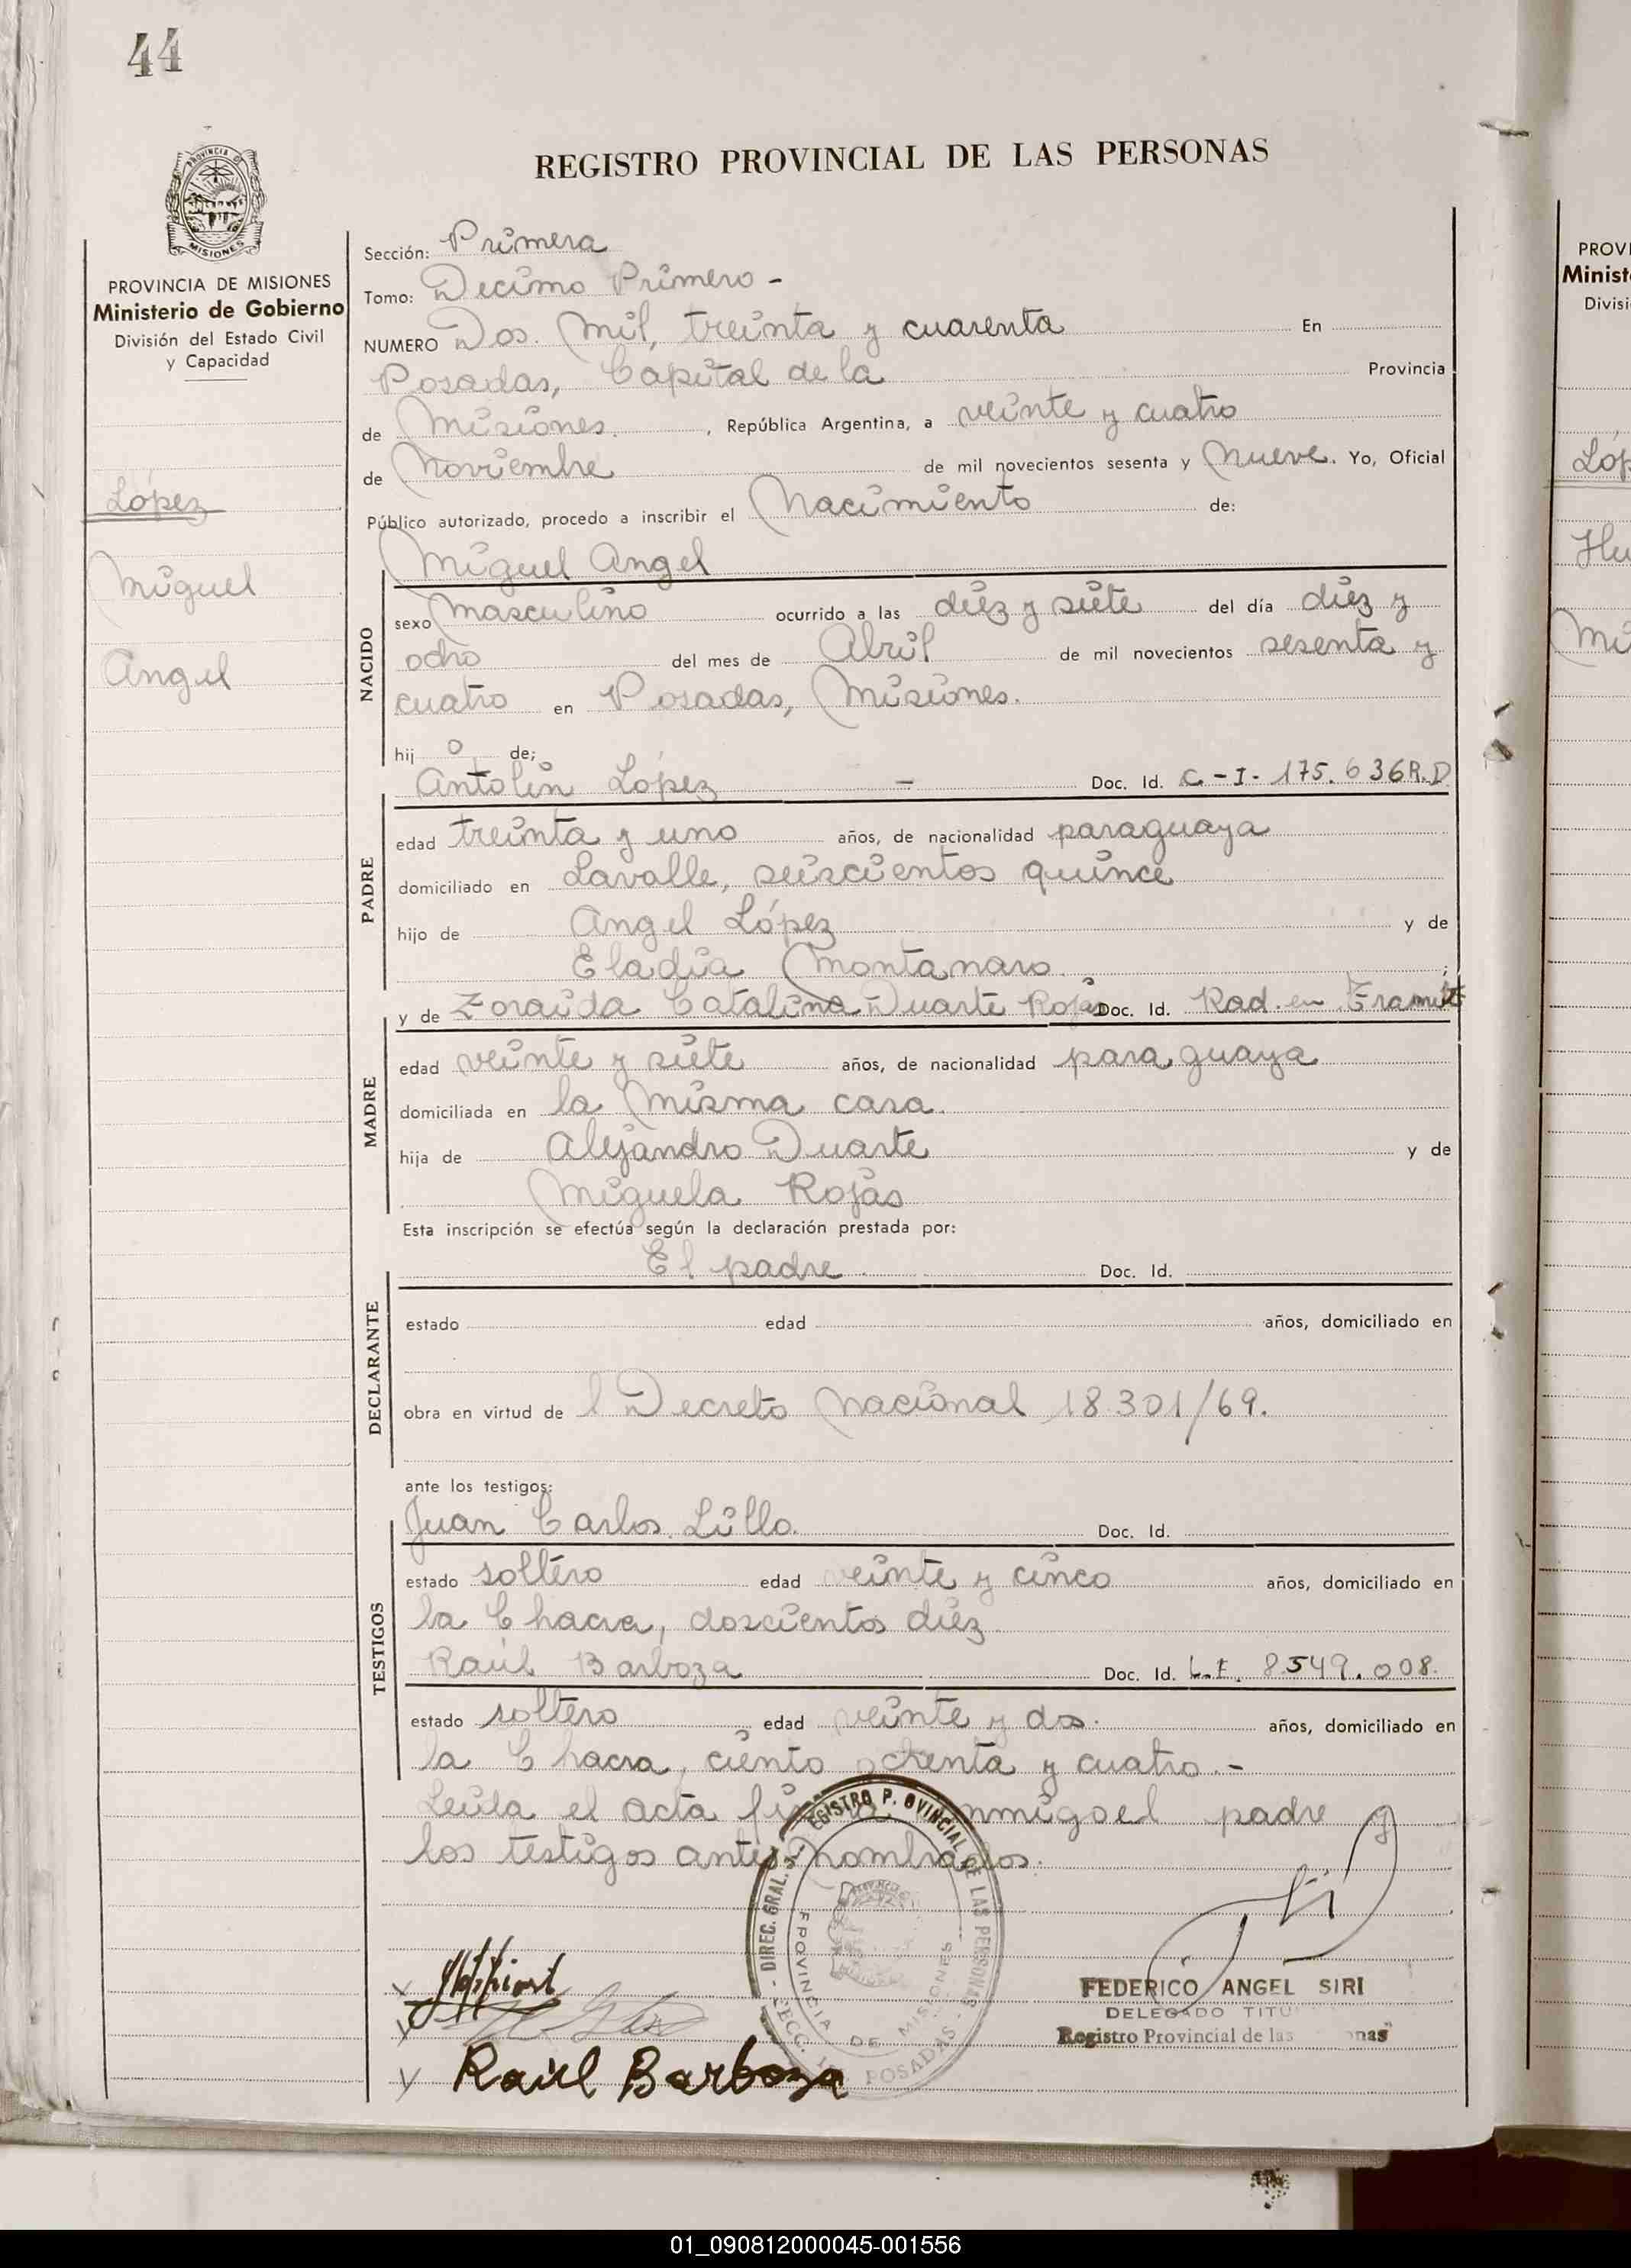 44
REGISTRO PROVINCIAL DE LAS PERSONAS
PROVINCIA DE MISIONES
PROVINCIA DE MISIONES
Ministerio de Gobierno
División del Estado Civil
y Capacidad
López
Miguel
Angel
Sección: Primera
Tomo: Decimo Primero -
NUMERO Dos. Mil, treinta y cuarenta En
Posadas, Capital de la Provincia
de Misiones. , República Argentina, a veinte y cuatro
de Noviembre de mil novecientos sesenta y Nueve. Yo, Oficial
Público autorizado, procedo a inscribir el Nacimiento de:
Miguel Angel
NACIDO
sexo Masculino ocurrido a las diez y siete del día diez y
ocho del mes de Abril de mil novecientos sesenta y
cuatro en Posadas, Misiones.
hij o de;
Antolin López - Doc. Id. C.-I- 175.636R.D
PADRE
edad treinta y uno años, de nacionalidad paraguaya
domiciliado en Lavalle, seiscientos quince
hijo de Angel López y de
Eladia Montanaro.
y de Zoraida Catalina Duarte Rojas Doc. Id. Rad. en Tramite
MADRE
edad veinte y siete años, de nacionalidad paraguaya
domiciliada en la Misma casa.
hija de Alejandro Duarte y de
Miguela Rojas
Esta inscripción se efectúa según la declaración prestada por:
El padre Doc. Id.
DECLARANTE
estado edad años, domiciliado en
obra en virtud de l Decreto Nacional 18.301/69.
ante los testigos:
Juan Carlos Lillo. Doc. Id.
TESTIGOS
estado soltero edad veinte y cinco años, domiciliado en
la Chacra, doscientos diez
Raúl Barboza Doc. Id. L.E. 8549.008.
estado soltero edad veinte y dos. años, domiciliado en
la Chacra, ciento ochenta y cuatro.-
Leída el acta el padre y
los testigos antes Nombrados.
DIREC. GRAL. REGISTRO PROVINCIAL DE LAS PERSONAS
PROVINCIA DE MISIONES
SECC. POSADAS
FEDERICO ANGEL SIRI
DELEGADO TITU
Registro Provincial de las nas
Raúl Barboza
PROVI
Minist
Divisi
Lóp
Hu
Mi
01_090812000045-001556